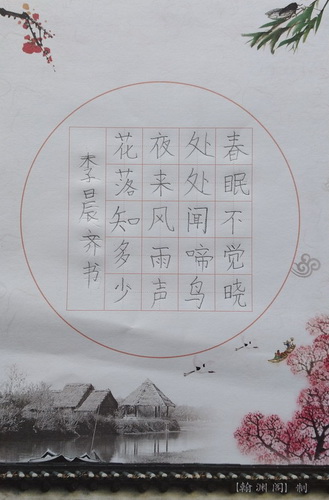 春眠不觉晓
处处闻啼鸟
夜来风雨声
花落知多少
李晨齐书
【翰渊阁】制